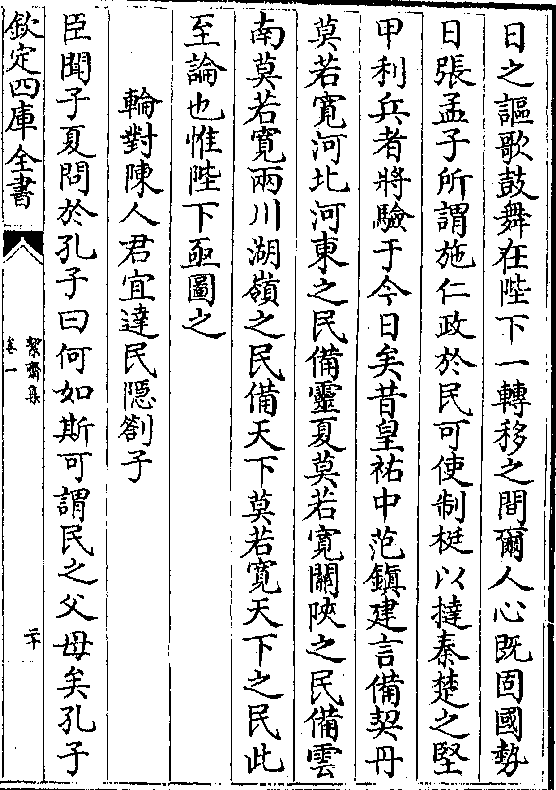 日之謳歌鼓舞在陛下一轉移之間爾人心既固國勢
日張孟子所謂施仁政於民可使制梃以撻秦楚之堅
甲利兵者將驗于今日矣昔皇祐中范鎮建言備契丹
莫若寛河北河東之民備靈夏莫若寛關陜之民備雲
南莫若寛兩川湖嶺之民備天下莫若寛天下之民此
至論也惟陛下亟圖之
輪對陳人君宜達民隠劄子
臣聞子夏問於孔子曰何如斯可謂民之父母矣孔子
欽定四庫全書
絜齋集
卷一
二十